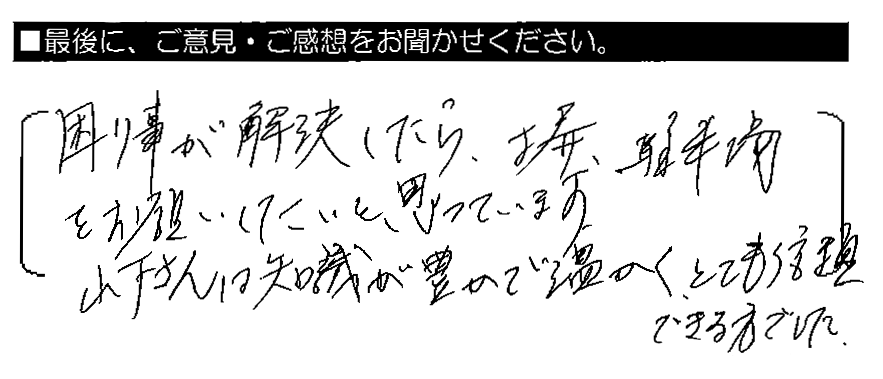 ■最後に、ご意見・ご感想をお聞かせください。
困り事が解決したら、お墓、駐車場
をお願いしたいと思っています。
山下さんは知識が豊かで温かく、とても信頼
できる方でした。